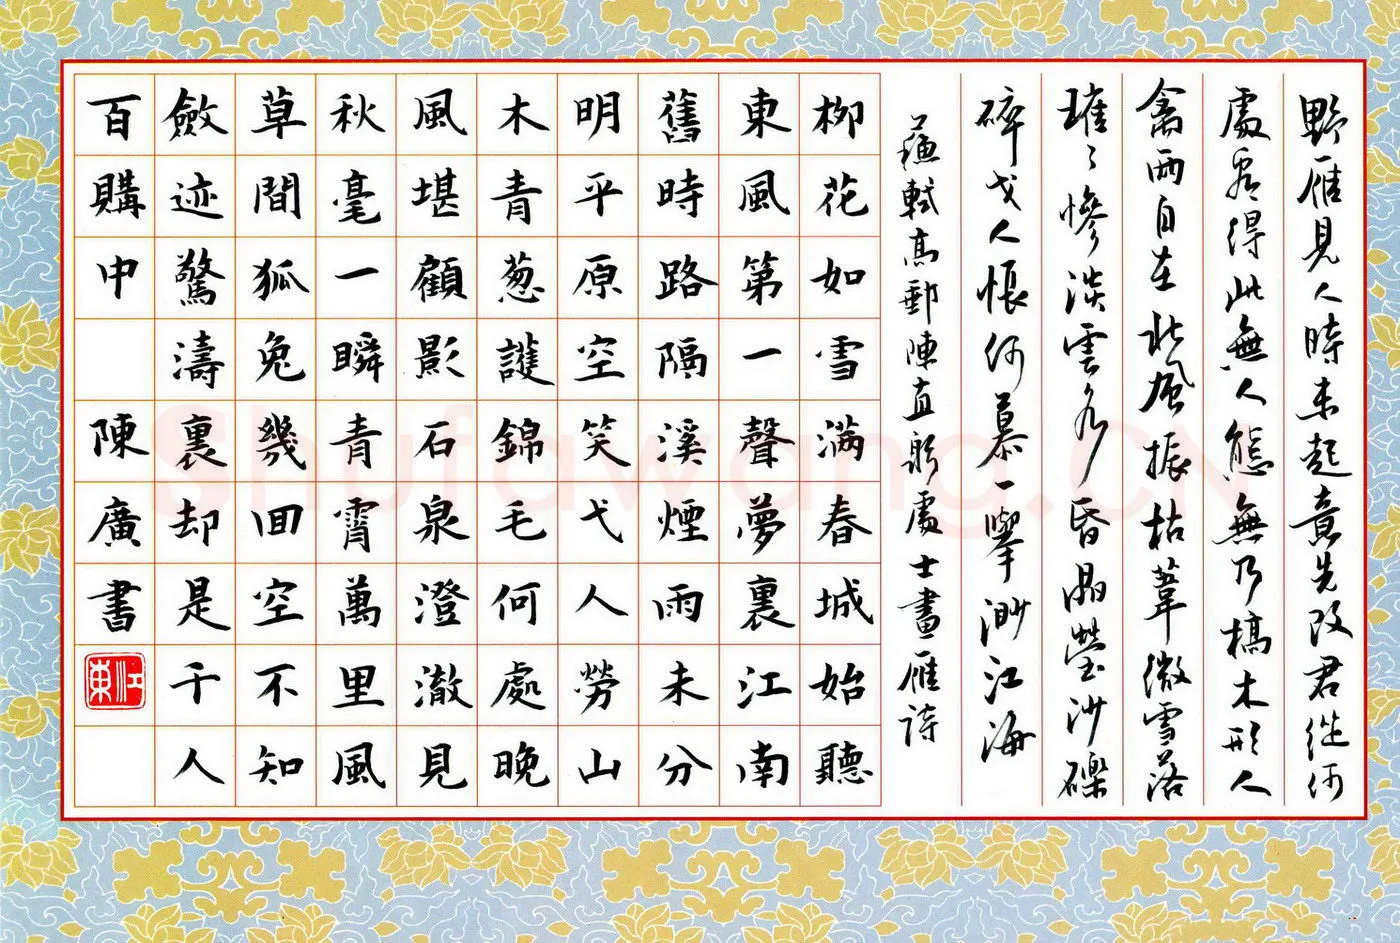 野雁見人時未起意先改君從何
處看得此無人態無乃槁木形人
禽兩自在北風振枯葦微雪落
璀〻慘淡雲水昏晶熒沙礫
碎弋人悵何慕一舉渺江海
蘇軾高郵陳直躬處士畫雁詩
柳花如雪满春城始聽
東風第一聲夢裏江南
舊時路隔溪煙雨未分
明平原空笑弋人勞山
木青葱護錦毛何處晚
風堪顧影石泉澄澈見
秋毫一瞬青霄萬里風
草間狐兔幾囬空不知
斂迹驚濤裏却是千人
百購中 陳廣書
江東
Shufawang.CN